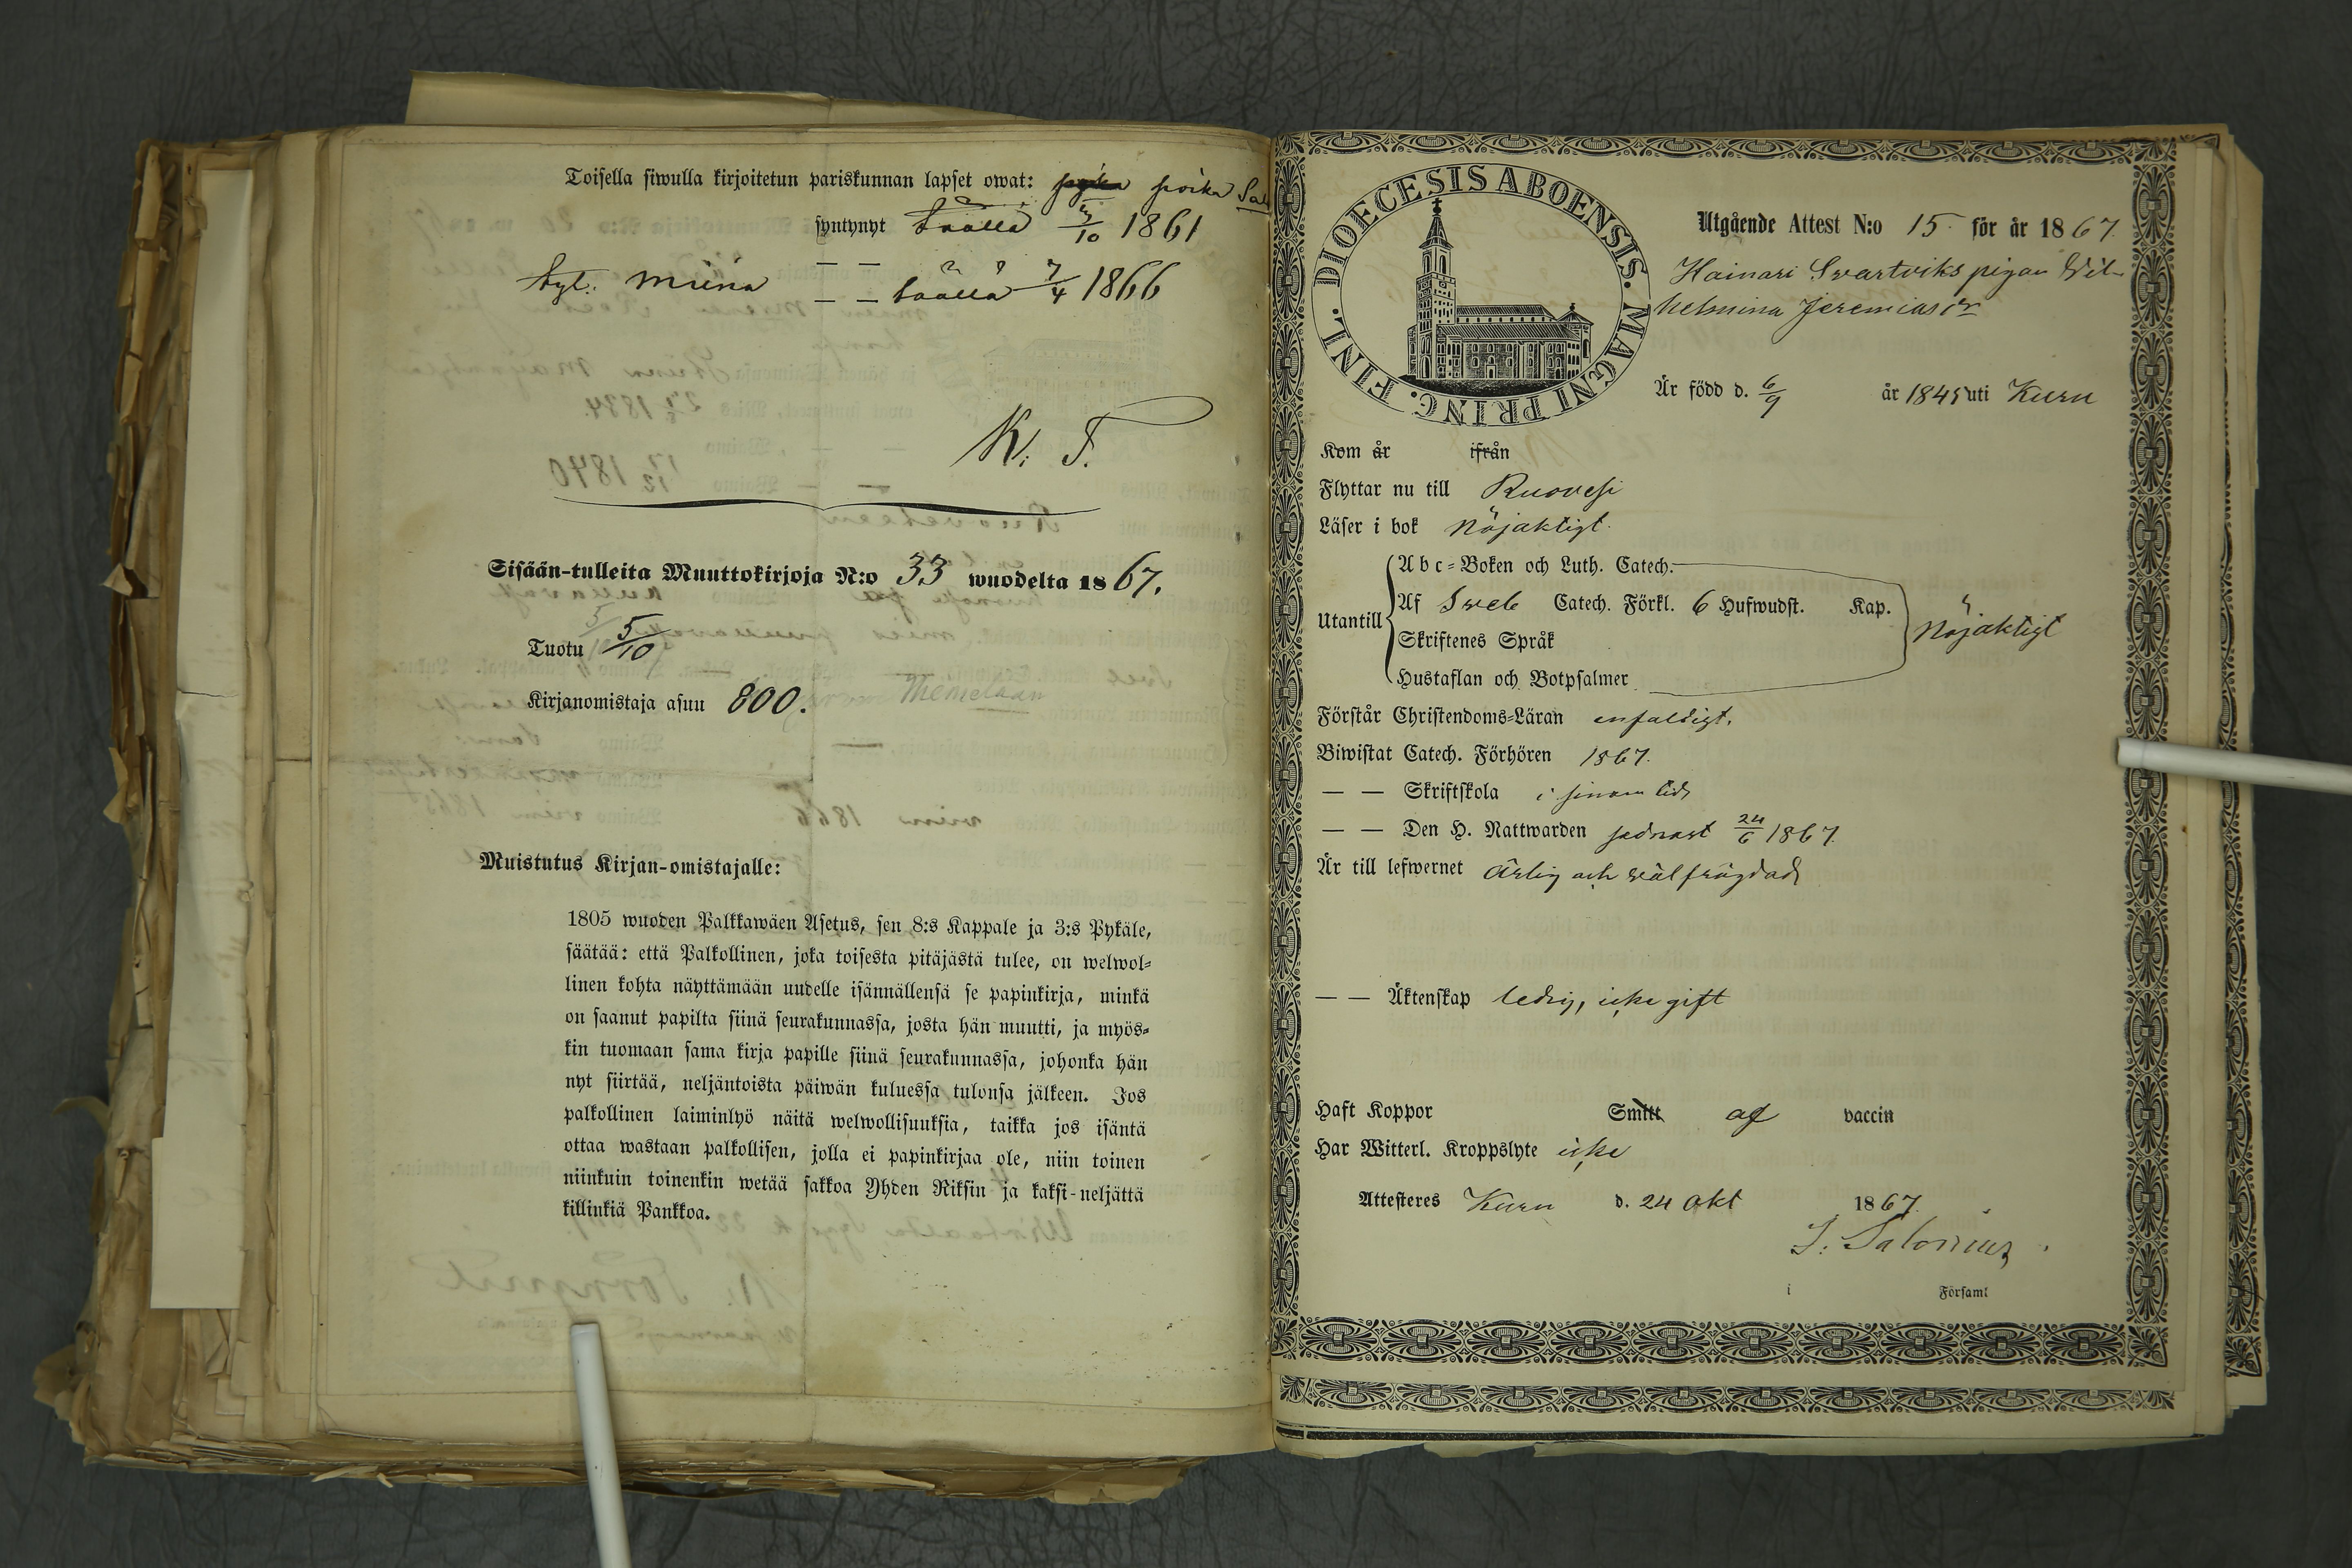 Toisella siwulla kirjoitetun pariskunnan lapset owat: poika Sal
syntynyt täällä 3/10 1861
tyt: Miina — — täällä 7/4 1866
K. T.
Sisään-tulleita Muuttokirjoja N:o 33 wuodelta 1867.
Tuotu 5/10
Kirjanomistaja asuu 800.
Muistutus Kirjan-omistajalle:
1805 wuoden Palkkawäen Asetus, sen 8:s Kappale ja 3:s Pykäle,
säätää: että Palkollinen, joka toisesta pitäjästä tulee, on welwol-
linen kohta näyttämään uudelle isännällensä se papinkirja, minkä
on saanut papilta siinä seurakunnassa, josta hän muutti, ja myös-
kin tuomaan sama kirja papille siinä seurakunnassa, johonka hän
nyt siirtää, neljäntoista päiwän kuluessa tulonsa jälkeen. Jos
palkollinen laiminlyö näitä welwollisuuksia, taikka jos isäntä
ottaa wastaan palkollisen, jolla ei papinkirjaa ole, niin toinen
niinkuin toinenkin wetää sakkoa Yhden Riksin ja kaksi-neljättä
killinkiä Pankkoa.
DIOECESIS ABOENSIS. MAGNI PRINC. FINL.
Utgående Attest N:o 15 för år 1867.
Hainari Svartviks pigan Wil-
helmina Jeremiasdr
Är född d. 6/9 år 1845 uti Kuru
Kom år ifrån
Flyttar nu till Ruovesi
Läser i bok Nöjaktigt.
Utantill
Abc-Boken och Luth. Catech.
Af Sweb Catech. Förkl. 6 Hufwudst. Kap.
Nöjaktigt
Skriftenes Språk
Hustaflan och Botpsalmer
Förstår Christendoms-Läran enfaldigt.
Biwistat Catech. Förhören 1867.
— — Skriftskola i sinom tid
— — Den H. Nattwarden sednast 24/6 1867.
Är till lefwernet Ärlig och välfrägdad
— — Äktenskap ledig, icke gift
Haft Koppor Smitt af vaccin
Har Witterl. Kroppslyte icke
Attesteres Kuru d. 24 Okt 1867.
J. Salonius
i Församl